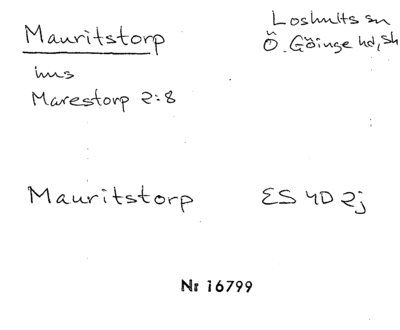 Mauritstorp
Loshults sn
Ö. Göinge hd, Sk
hus
Marestorp 2:8
Mauritstorp
ES 4D 2j
Nr 16799